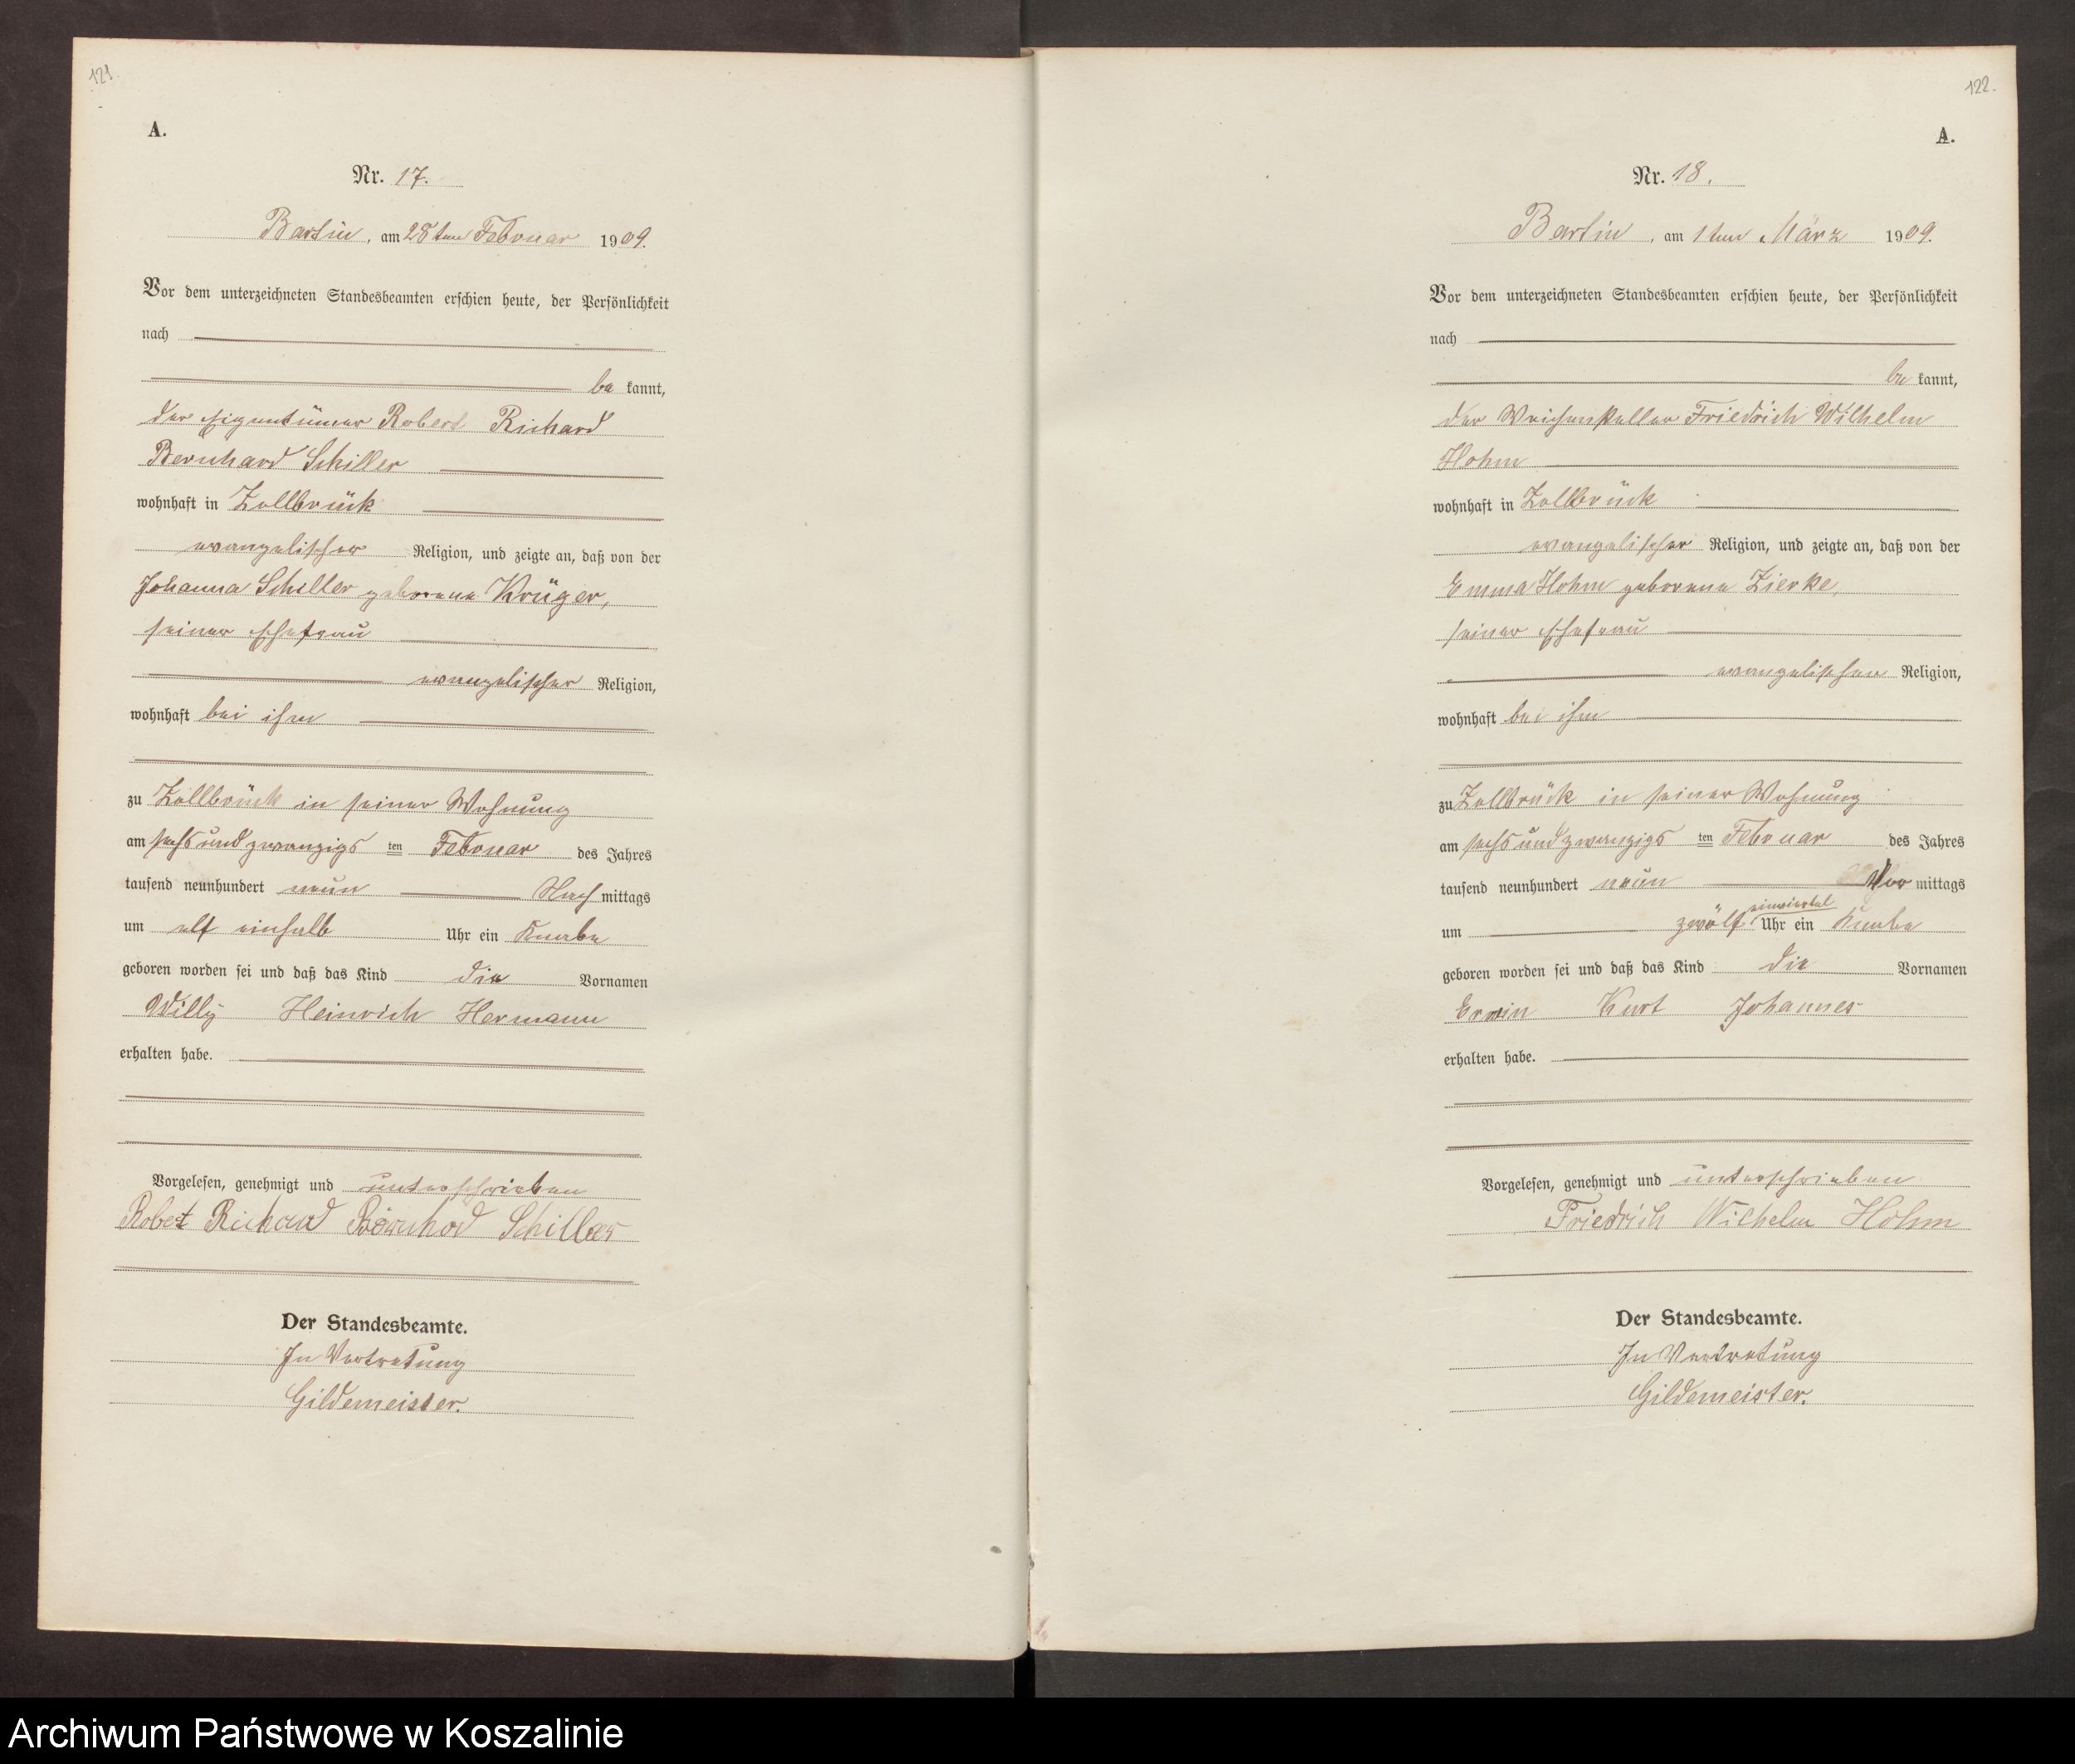 121.
A.
Nr. 17.
Bartin, am 28ten Februar 1909.
Vor dem unterzeichneten Standesbeamten erschien heute, der Persönlichkeit
nach
be kannt,
der Eigentümer Robert Richard
Bernhard Schiller
wohnhaft in Zollbrück
evangelischer Religion, und zeigte an, daß von der
Johanna Schiller geborene Krüger,
seiner Ehefrau
evangelischer Religion,
wohnhaft bei ihm
zu Zollbrück in seiner Wohnung
am sechsundzwanzigs ten Februar des Jahres
tausend neunhundert neun Nach mittags
um elf einhalb Uhr ein Knabe
geboren worden sei und daß das Kind die Vornamen
Willy Heinrich Hermann
erhalten habe.
Vorgelesen, genehmigt und unterschrieben
Robert Richard Bernhard Schiller
Der Standesbeamte.
In Vertretung
Gildemeister.
122.
A.
Nr. 18.
Bartin, am 1ten März 1909.
Vor dem unterzeichneten Standesbeamten erschien heute, der Persönlichkeit
nach
be kannt,
der Weichensteller Friedrich Wilhelm
Hohm
wohnhaft in Zollbrück
evangelischer Religion, und zeigte an, daß von der
Emma Hohm geborene Zierke,
seiner Ehefrau
evangelischen Religion,
wohnhaft bei ihm
zu Zollbrück in seiner Wohnung
am sechsundzwanzigs ten Februar des Jahres
tausend neunhundert neun Vor mittags
um zwölf einviertel Uhr ein Knabe
geboren worden sei und daß das Kind die Vornamen
Erwin Kurt Johannes
erhalten habe.
Vorgelesen, genehmigt und unterschrieben
Friedrich Wilhelm Hohm
Der Standesbeamte.
In Vertretung
Gildemeister.
Archiwum Państwowe w Koszalinie